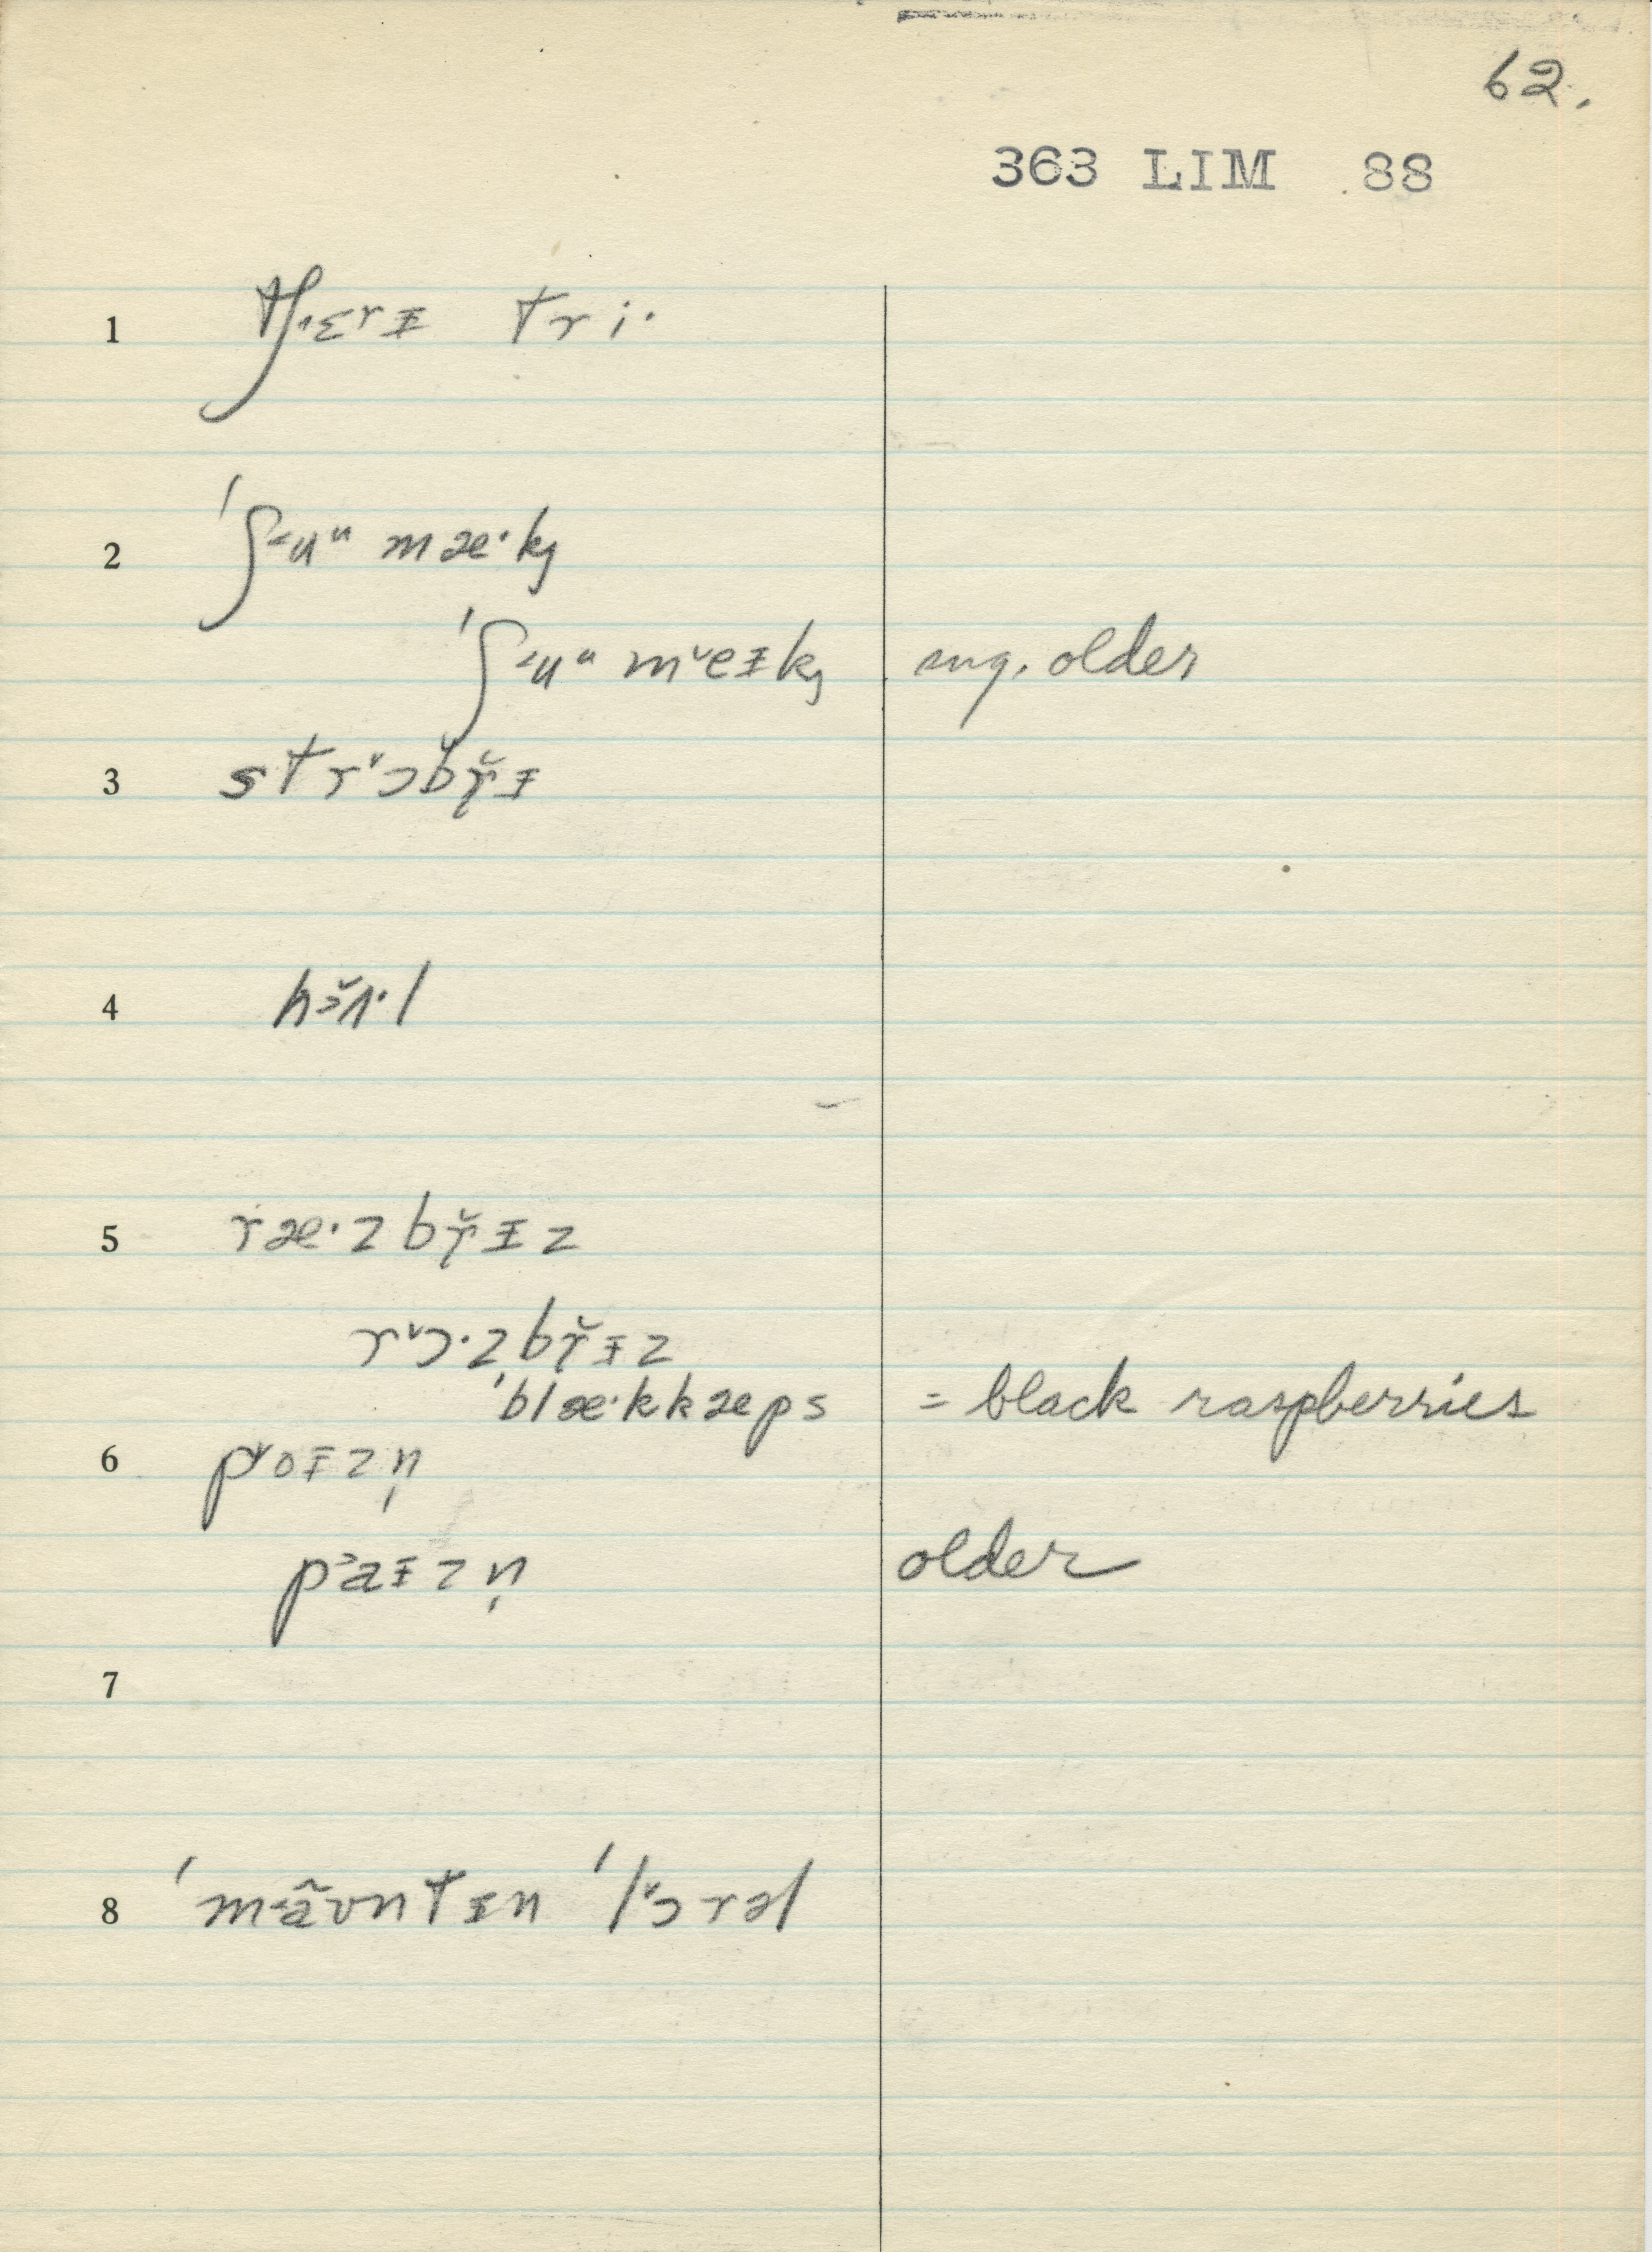 62.
363 LIM 88
1 tʃ˔ɛrᵻ tri·
2 ˈʃ˗uᵘ mæ·k̡
ˈʃ˗uᵘ m˅eᵻk̡ sug. older
3 str˅ɔbɚ̆ᵻ
4 hɜ̆ɪ·l
5 ræ·zbɚ̆ᵻz
r˅ɔ·zbɚ̆ᵻz
ˈblæ·kkæps = black raspberries
6 p˅oᵻzn̩
p˃aᵻzn̩ older
7
8 ˈmãʊntᵻn ˈl˅ɔrəl